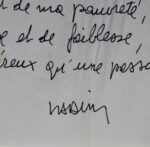 t de ma pauvreté,
e et de faiblesse,
reux qu'une passi
NADIN